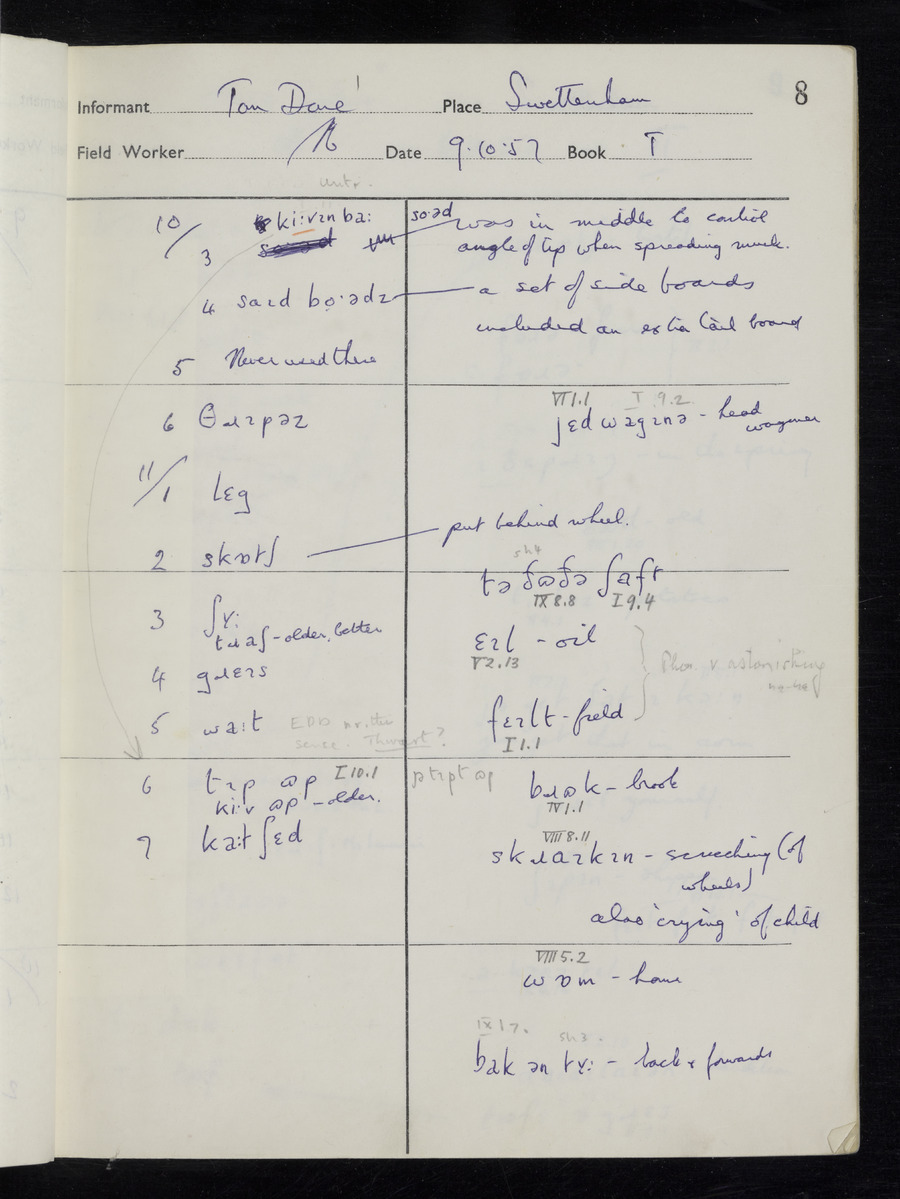 8
Informant Tom Dave Place Swettenham
Field Worker Date 9.10.57 Book I
10/3 ki:vɪn ba:
so·əd was in middle to control
angle of tip when spreading muck.
4 saɪd bo̜·ədz a set of side boards
included an extra tail board
5 Never used there
VI 1.1 I 9.2
6 θɹɪpəz
jɛd wagɪnə - head
wagoner
11/1 lɛg
put behind wheel.
2 skɒtʃ
sh4
tə ðɷðə ʃaft
IX 8.8 I 9.4
3 ʃɤ:
tɹaʃ - older, better
ɛɪl - oil
V 2.13
4 gɹɛɪs
Phon. v astonishing
5 wa:t EDD
sense. Thwart?
fɛɪlt - field
I 1.1
6 tɪp ɷp I 10.1
ki:v ɷp - older.
ptɪpt ɷp
bɹɷk - brook
IV 1.1
7 ka:tʃɛd
VIII 8.11
skɹaɪkɪn - screeching (of
wheels)
also 'crying' of child
VIII 5.2
wɒm - home
IX 1 7.
sh3.
bak ən tɤ: - back & forwards